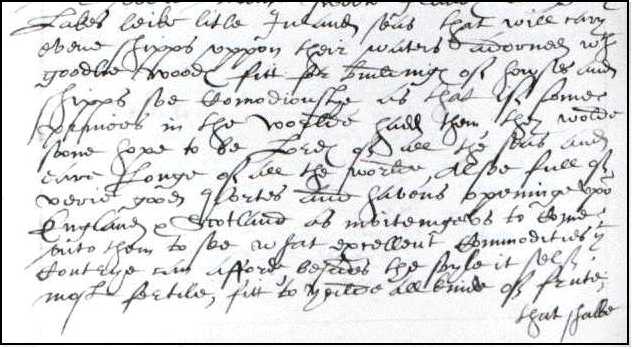 Lakes leike litle Inland seas that will cary
evene shipps uppon their waters adorned wth
goodlie woods fitt for buildinge of howses and
shipps soe comodiouslye as that if some
princes in the worlde hadd them they wolde
sone hope to be Lords of all the seas and
eare longe of all the worlde, Alsoe full of
verie good portes and havens openinge upo
England & Scotland as invitinge us to come
unto them to see what excellent Commodities yt
Contrye can afford besides the soyle it self
most fertile, fitt to yeilde all kinde of frute,
that shalbe